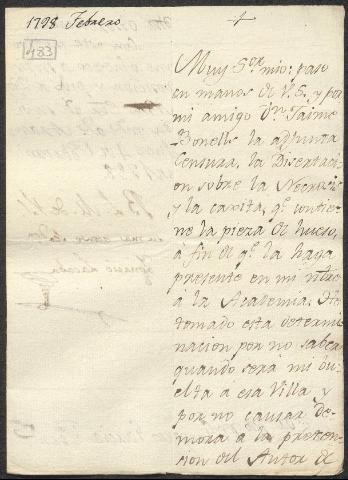 1798 Febrero
+
483
Muy Sor. mio: paso
en manos de V.S. y por
mi amigo Dn. Jaime
Bonells la adjunta
Censura, la Disertaci-
on sobre la Necrosis
y la caxita, qe. contie-
ne la pieza de hueso,
á fin de qe. la haga
presente en mi nbre
á la Academia. He
tomado esta determi-
nacion por no saber
quando será mi bu-
elta á esa Villa y
por no causar de-
mora á la preten-
sion del Autor de